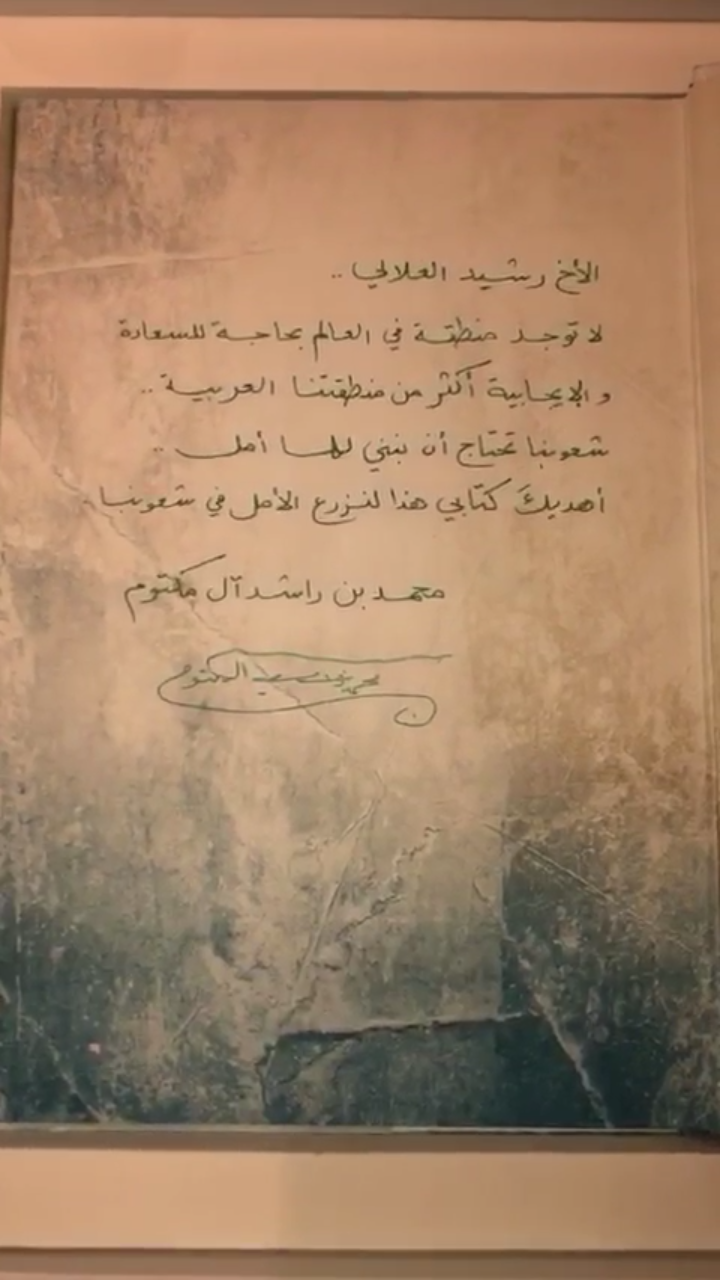 الأخ رشيد العلالي ..
لا توجد منطقة في العالم بحاجة للسعادة
و الإيجابية أكثر من منطقتنا العربية ..
شعوبنا تحتاج أن نبني لها أمل ..
أهديكَ كتابي هذا لنزرع الأمل في شعوبنا
محمد بن راشد آل مكتوم